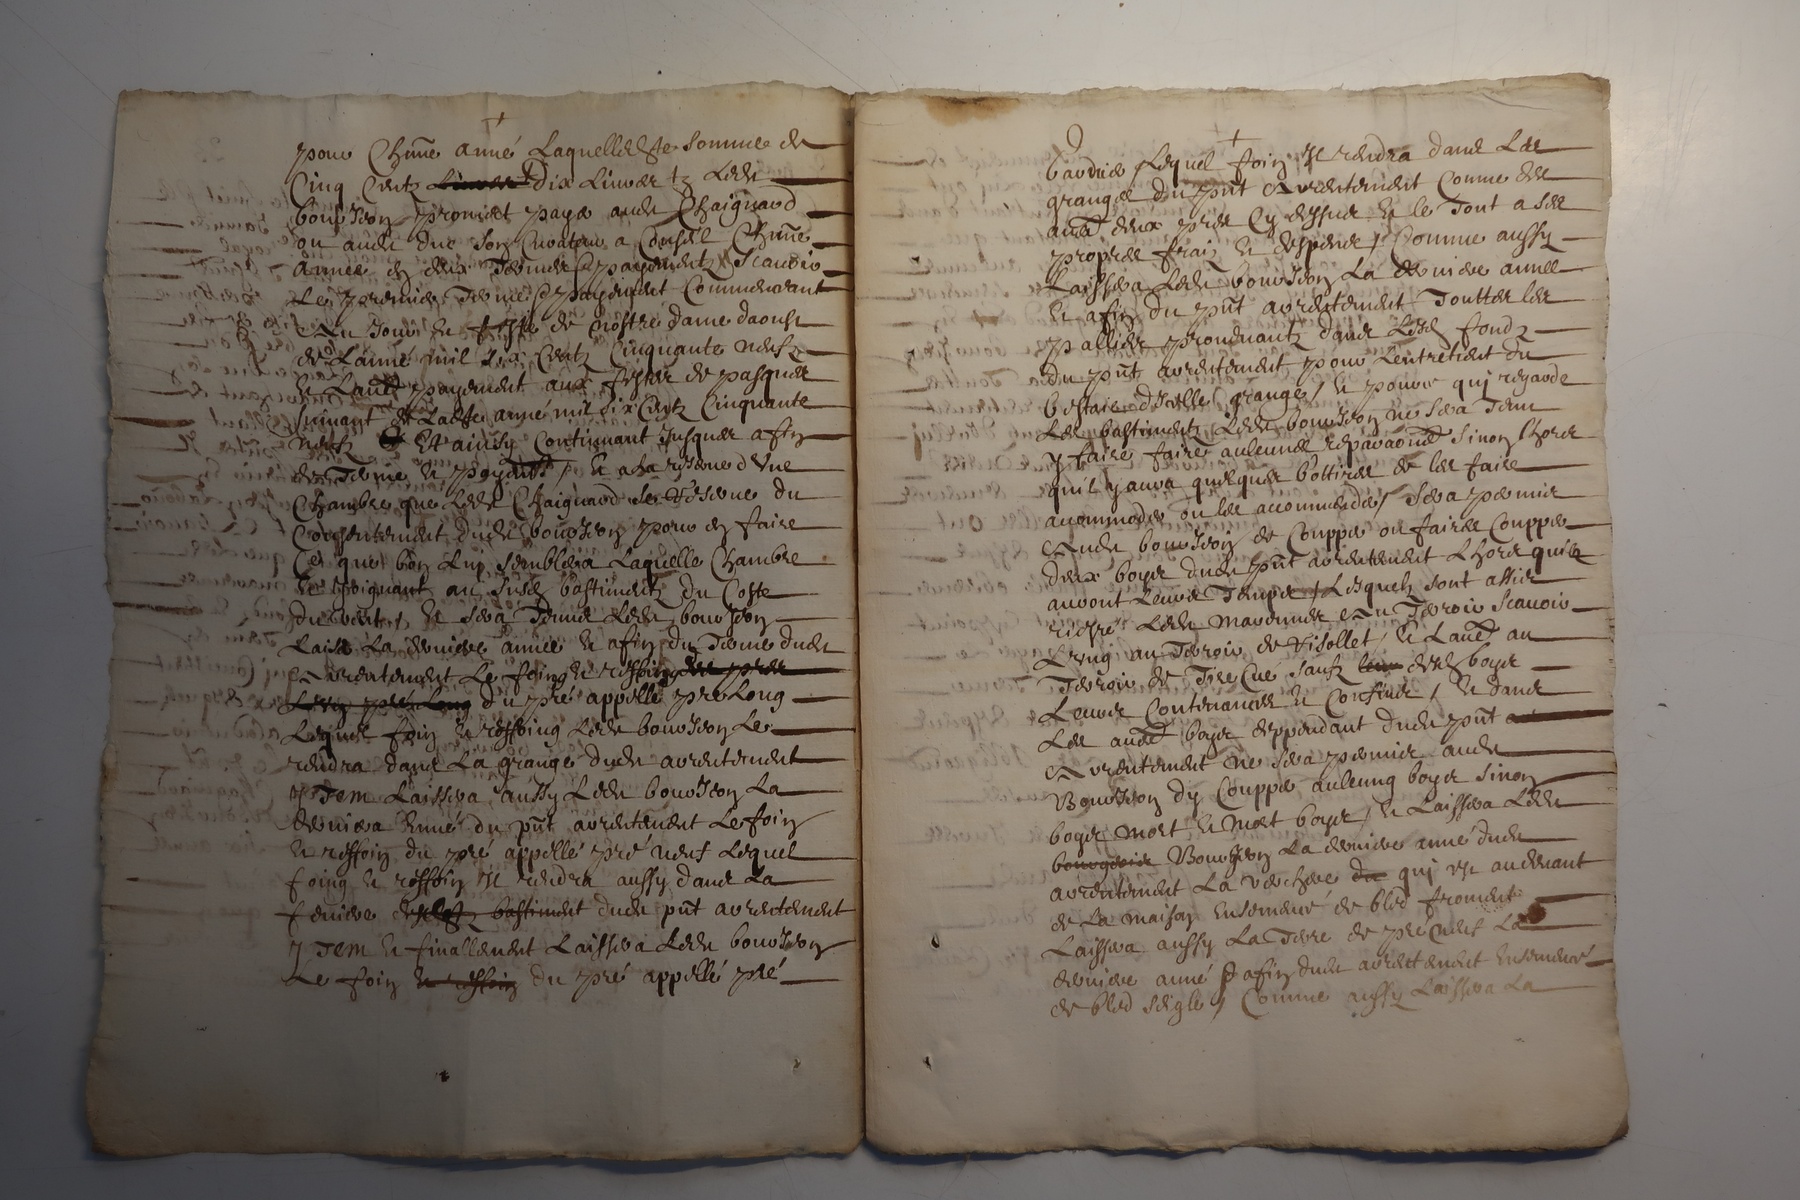 pour Chūne anné Laquelle dte somme de
Cinq Centz Liures dix Liures tz Ledt
bourgeon promet paye audt Chaignard
ou audt duc son Curateur a Conseil Chūne
année en deux Termes & payementz Scauoir
Le premier Terme & payement Commencant
Au Jour & feste de nostre dame daoust
de Lanné mil six Centz Cinquante neufz
& Lautre payement aux festes de pasques
suiuant de Ladte anné mil six Centz Cinquante
neufz Et ainsy Continuant Jusques a fin
de Terme & payant / & a la reserue d'Vne
Chambre que Ledt Chaignard se Reserue du
Consentement dudt bourgeon pour en faire
Ce que bon Luy semblera Laquelle Chambre
Et Joignant au susd bastimentz du Coste
du & sera Tenu Ledt bourgeon
Laisse La derniere année & a fin du Terme dudt
Arrentement Le foing & reffoing des prés
du pré appellé pré Long
Lequel foin & reffoing Ledt bourgeon Le
rendra dans La grange dudt arrentement
Item Laissera aussy Ledt bourgeon La
derniera anné du pnt arrentement Le foin
& reffoin du pré appellé pré neuf Lequel
foing & reffoin Il rendra aussy dans La
feniere bastiment dudt pnt arrentement
Item & finallement Laissera Ledt bourgeon
Le foin & reffoin du pré appellé pré
Lequel foin Il rendra dans Les
granges du pnt Arrentement Comme des
autres deux prés Cy dessus & le Tout a ses
propres frais & despens / Comme aussy
Laissera Ledt bourgeon La derniere année
& a fin du pnt arrentement Touttes les
pallies prouenantz dans Lesd fondz
du pnt arrentement pour Lentretient du
bestail d'Icelle grange / & pour ce qui regarde
Les bastimentz Ledt bourgeon ne sera Tenu
y faire faire aulcunes reparaõns Sinon Lhors
quil y aura quelques bottires de les faire
accommoder ou les accommodes / sera permis
Audt bourgeon de Couppe ou faires Couppes
deux boys dudt pnt arrentement Lhors quilz
auront Leurs Temps / Lesquelz sont assis
riere Ledt Scauoir
L'vng au Terroir de / & Lautre au
Terroir de sauf desd boys
Leurs Contenances & Confins / & dans
Les autres boys deppendant dudt pnt
Arrentement ne sera permis audt
Bourgeon dy Couppe aulcung boys sinon
boys mort & mort boys / & Laissera Ledt
bourgeois Bourgeon La derniere anné dudt
arrentement La verchere du qui Est au deuant
de La maison Ensemencé de bled froment
Laissera aussy La Terre de pré neuf La
derniere anné & a fin dudt arrentement Ensemencé
de bled seigle / Comme aussy Laissera La